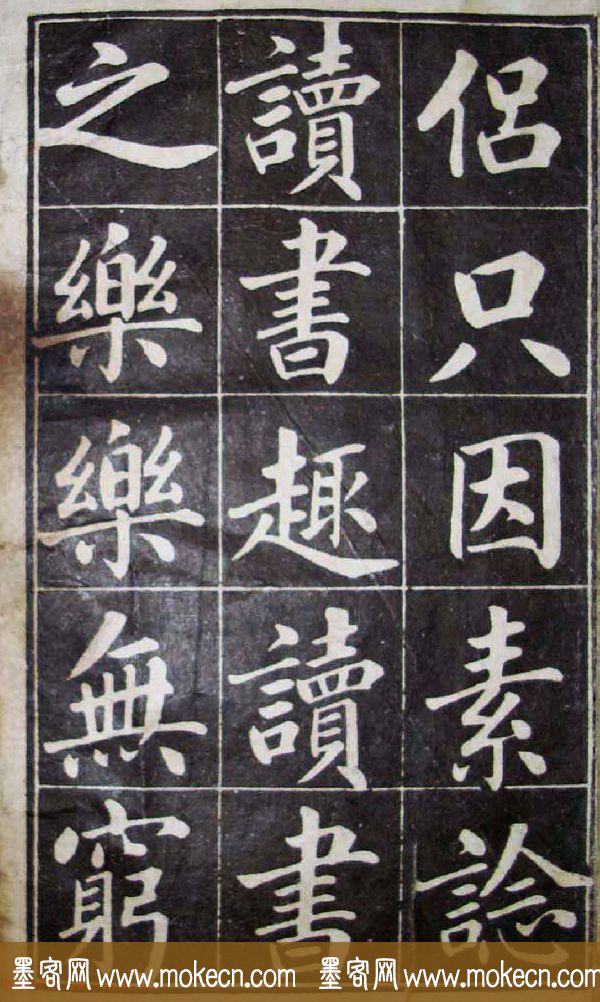 侶只因素諗
讀書趣讀書
之樂樂無窮
墨客网 www.mokecn.com 墨客网 www.mokecn.com